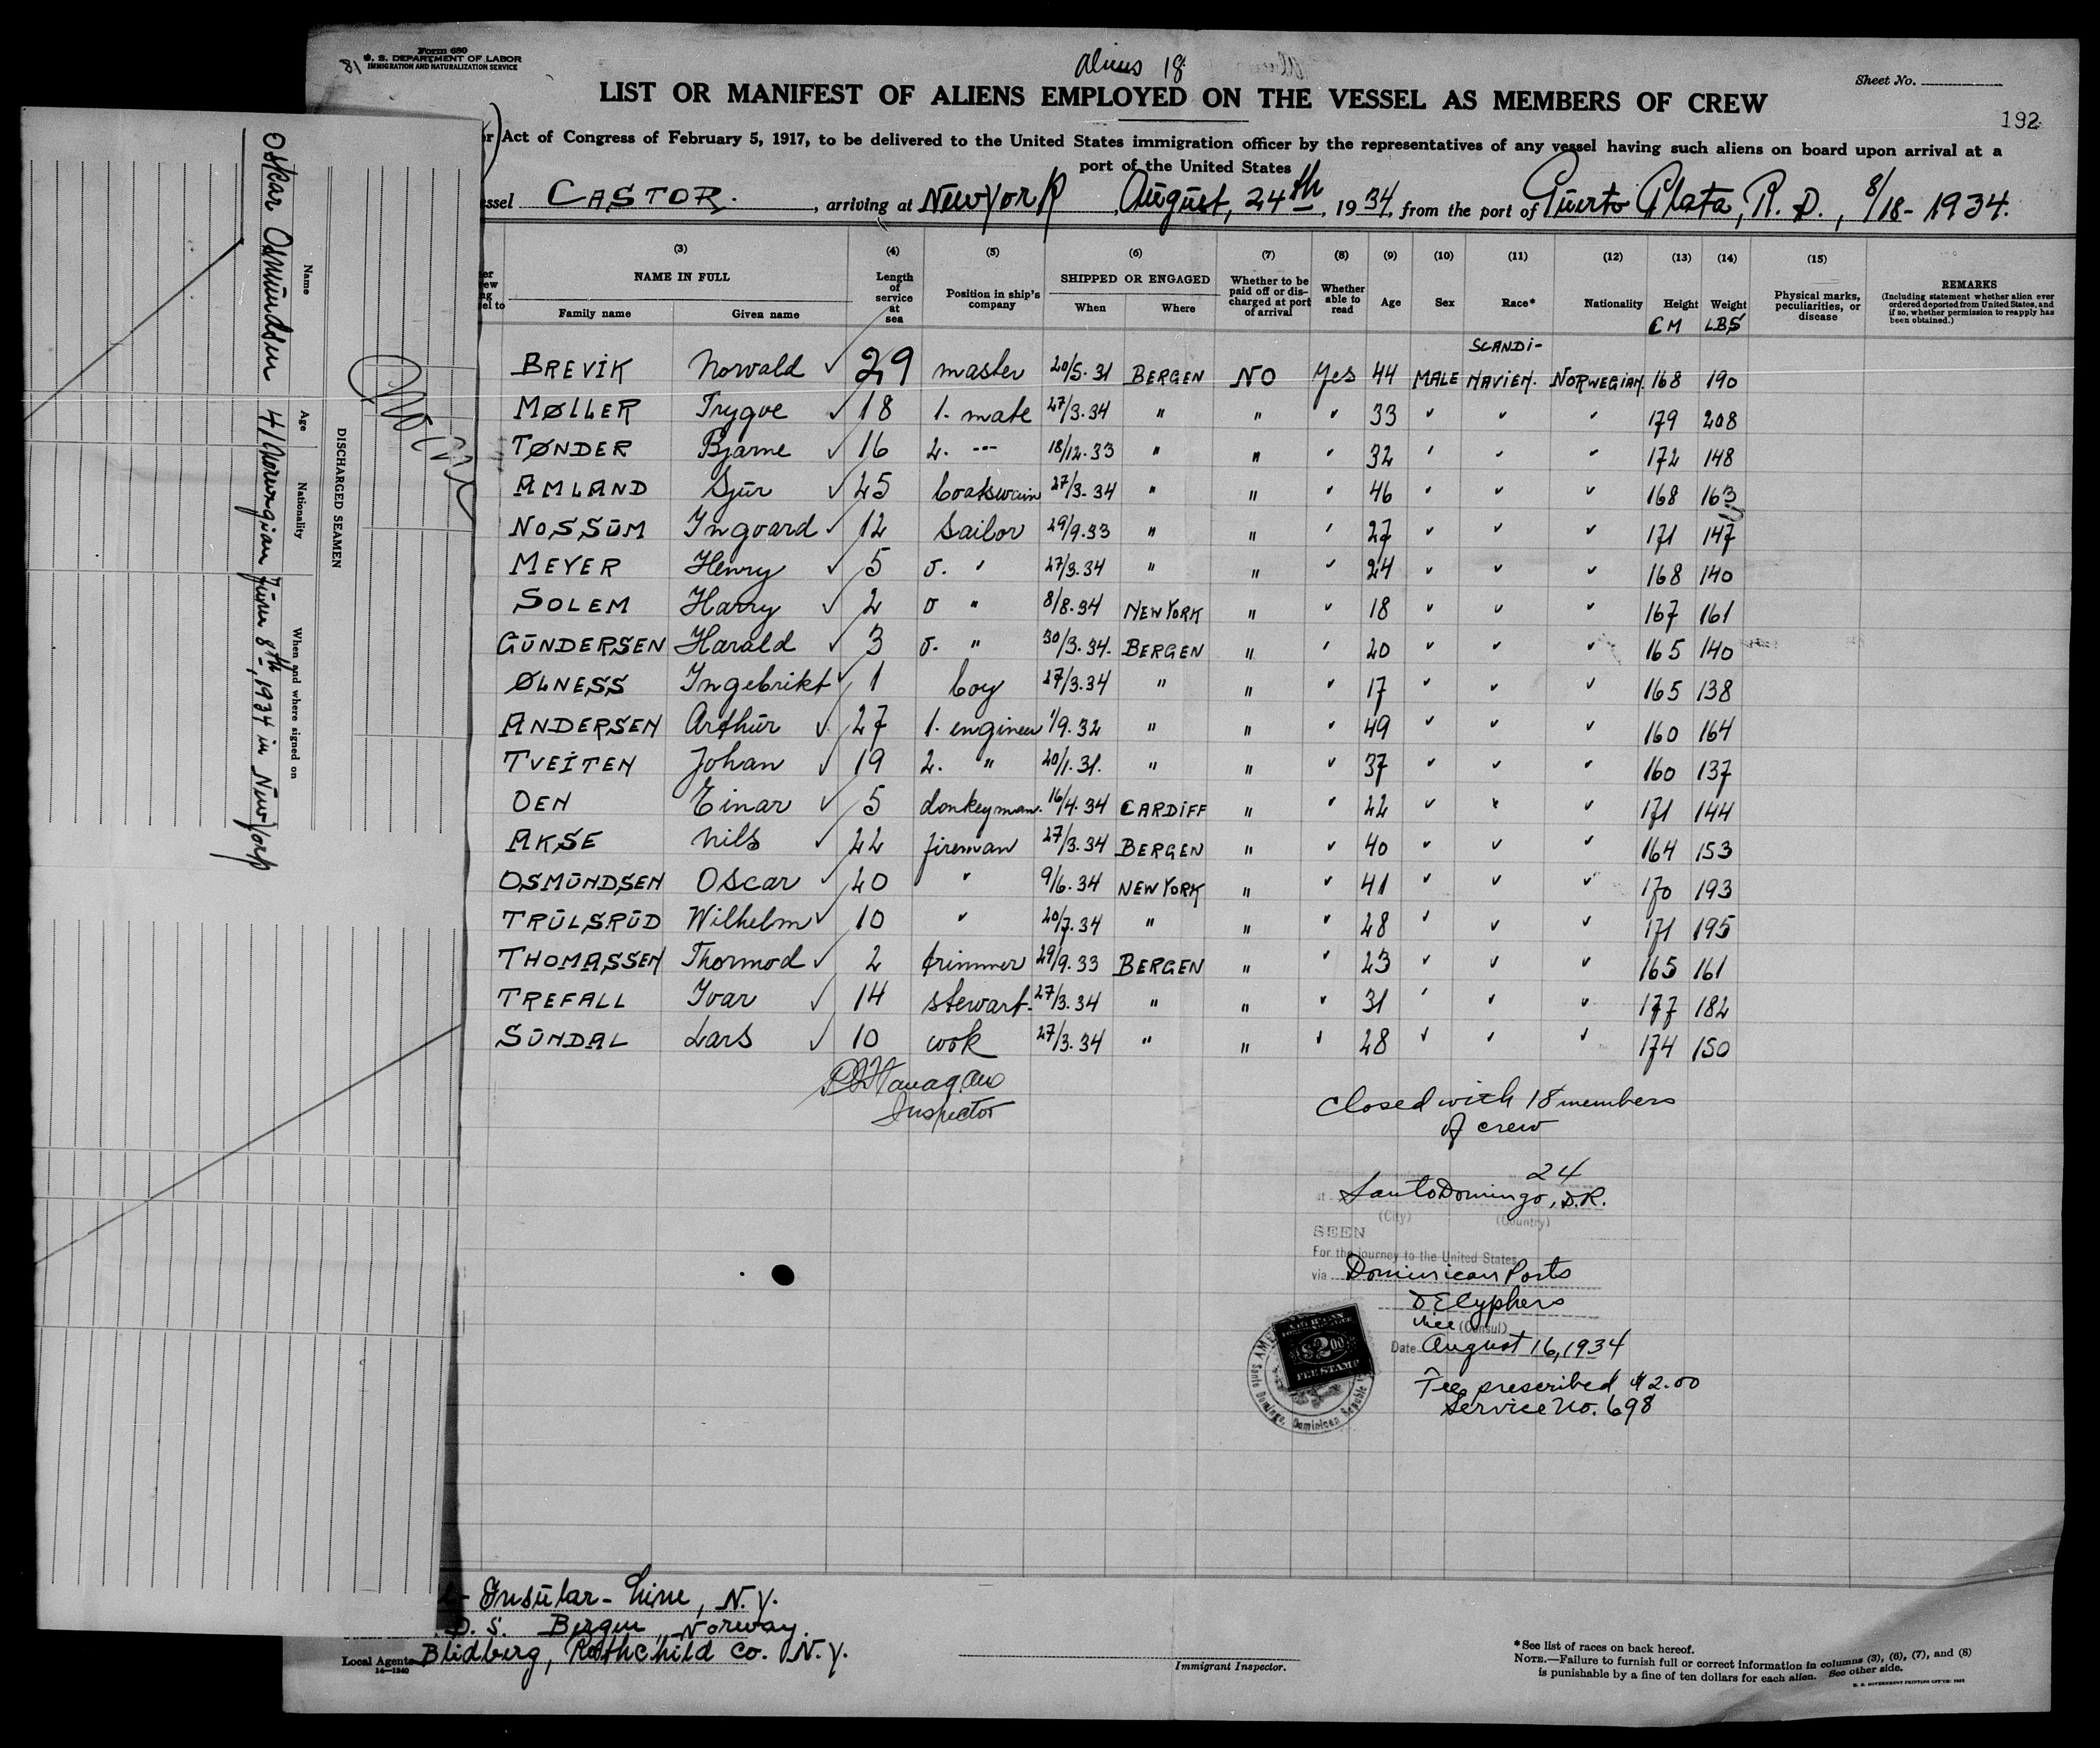 Form 680
U. S. DEPARTMENT OF LABOR
IMMIGRATION AND NATURALIZATION SERVICE
81
Aliens 18
Sheet No.
LIST OR MANIFEST OF ALIENS EMPLOYED ON THE VESSEL AS MEMBERS OF CREW
192
Act of Congress of February 5, 1917, to be delivered to the United States immigration officer by the representatives of any vessel having such aliens on board upon arrival at a
port of the United States
essel CASTOR. , arriving at New York , August, 24th , 1934, from the port of Puerto Plata, R. D., 8/18-1934.
(3) (4) (5) (6) (7) (8) (9) (10) (11) (12) (13) (14) (15)
NAME IN FULL
Family name Given name
Length of service at sea
Position in ship's company
SHIPPED OR ENGAGED
When Where
Whether to be paid off or discharged at port of arrival
Whether able to read
Age
Sex
Race*
Nationality
Height CM
Weight LBS
Physical marks, peculiarities, or disease
REMARKS
(Including statement whether alien ever ordered deported from United States, and if so, whether permission to reapply has been obtained.)
BREVIK Norvald ✓ 29 master 20/5.31 BERGEN NO Yes 44 MALE SCANDI-NAVIEN. NORWEGIAN. 168 190
MØLLER Trygve ✓ 18 1. mate 27/3.34 " " ✓ 33 ✓ ✓ ✓ 179 208
TØNDER Bjarne ✓ 16 2. --- 18/12.33 " " ✓ 32 ✓ ✓ ✓ 172 148
AMLAND Sjur ✓ 25 boatswain 27/3.34 " " ✓ 46 ✓ ✓ ✓ 168 163
NOSSŪM Ingvard ✓ 12 sailor 29/9.33 " " ✓ 27 ✓ ✓ ✓ 171 147
MEYER Henry ✓ 5 o. " 27/3.34 " " ✓ 24 ✓ ✓ ✓ 168 140
SOLEM Harry ✓ 2 o " 8/8.34 NEW YORK " ✓ 18 ✓ ✓ ✓ 167 161
GŪNDERSEN Harald ✓ 3 o. " 30/3.34. BERGEN " ✓ 20 ✓ ✓ ✓ 165 140
ØLNESS Ingebrikt ✓ 1 boy 27/3.34 " " ✓ 17 ✓ ✓ ✓ 165 138
ANDERSEN Arthūr ✓ 27 1. engineer 1/9.32 " " ✓ 49 ✓ ✓ ✓ 160 164
TVEITEN Johan ✓ 19 2. " 20/1.31. " " ✓ 37 ✓ ✓ ✓ 160 137
OEN Einar ✓ 5 donkeyman. 16/4.34 CARDIFF " ✓ 22 ✓ ✓ ✓ 171 144
AKSE Nils ✓ 22 fireman 27/3.34 BERGEN " ✓ 40 ✓ ✓ ✓ 164 153
OSMŪNDSEN Oscar ✓ 20 " 9/6.34 NEW YORK " ✓ 41 ✓ ✓ ✓ 170 193
TRŪLSRŪD Wilhelm ✓ 10 " 20/7.34 " " ✓ 28 ✓ ✓ ✓ 171 195
THOMASSEN Thormod ✓ 2 trimmer 29/9.33 BERGEN " ✓ 23 ✓ ✓ ✓ 165 161
TREFALL Ivar ✓ 14 stewart. 27/3.34 " " ✓ 31 ✓ ✓ ✓ 177 182
SŪNDAL Lars ✓ 10 cook 27/3.34 " " ✓ 28 ✓ ✓ ✓ 174 150
Inspector
Closed with 18 members
of crew
24
Santo Domingo, D.R.
(City) (Country)
SEEN
For the journey to the United States
via Dominican Ports
Vice (Consul)
Date August 16, 1934
Fee prescribed $2.00
Service No. 698
$2.00
FEE STAMP
Santo Domingo, Dominican Republic
Insūlar-Line, N.Y.
D. S. Bergen, Norway.
Local Agents Blidberg, Rothchild Co. N.Y.
14—1240
Immigrant Inspector.
*See list of races on back hereof.
NOTE.—Failure to furnish full or correct information in columns (3), (6), (7), and (8)
is punishable by a fine of ten dollars for each alien. See other side.
U. S. GOVERNMENT PRINTING OFFICE: 1932
DISCHARGED SEAMEN
Name Age Nationality When and where signed on
Oskar Osmūndsen 41 Norwegian Jūne 8th, 1934 in New York